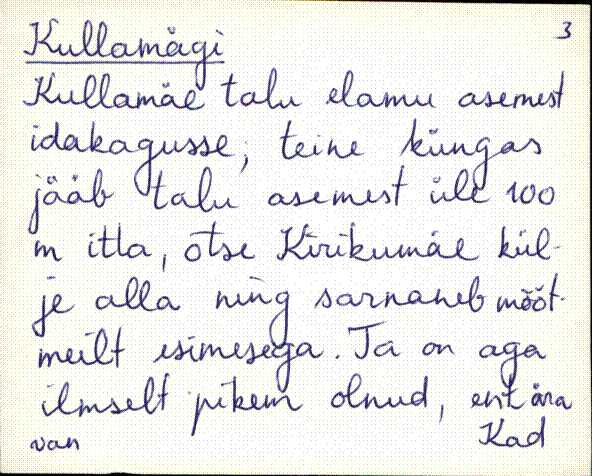 Kullamägi 3
Kullamäe talu elamu asemest
idakagusse; teine küngas
jääb talu asemest üle 100
m itta, otse Kirikumäe kül-
je alla ning sarnaneb mõõt-
meilt esimesega. Ta on aga
ilmselt pikem olnud, ent ära
van Kad